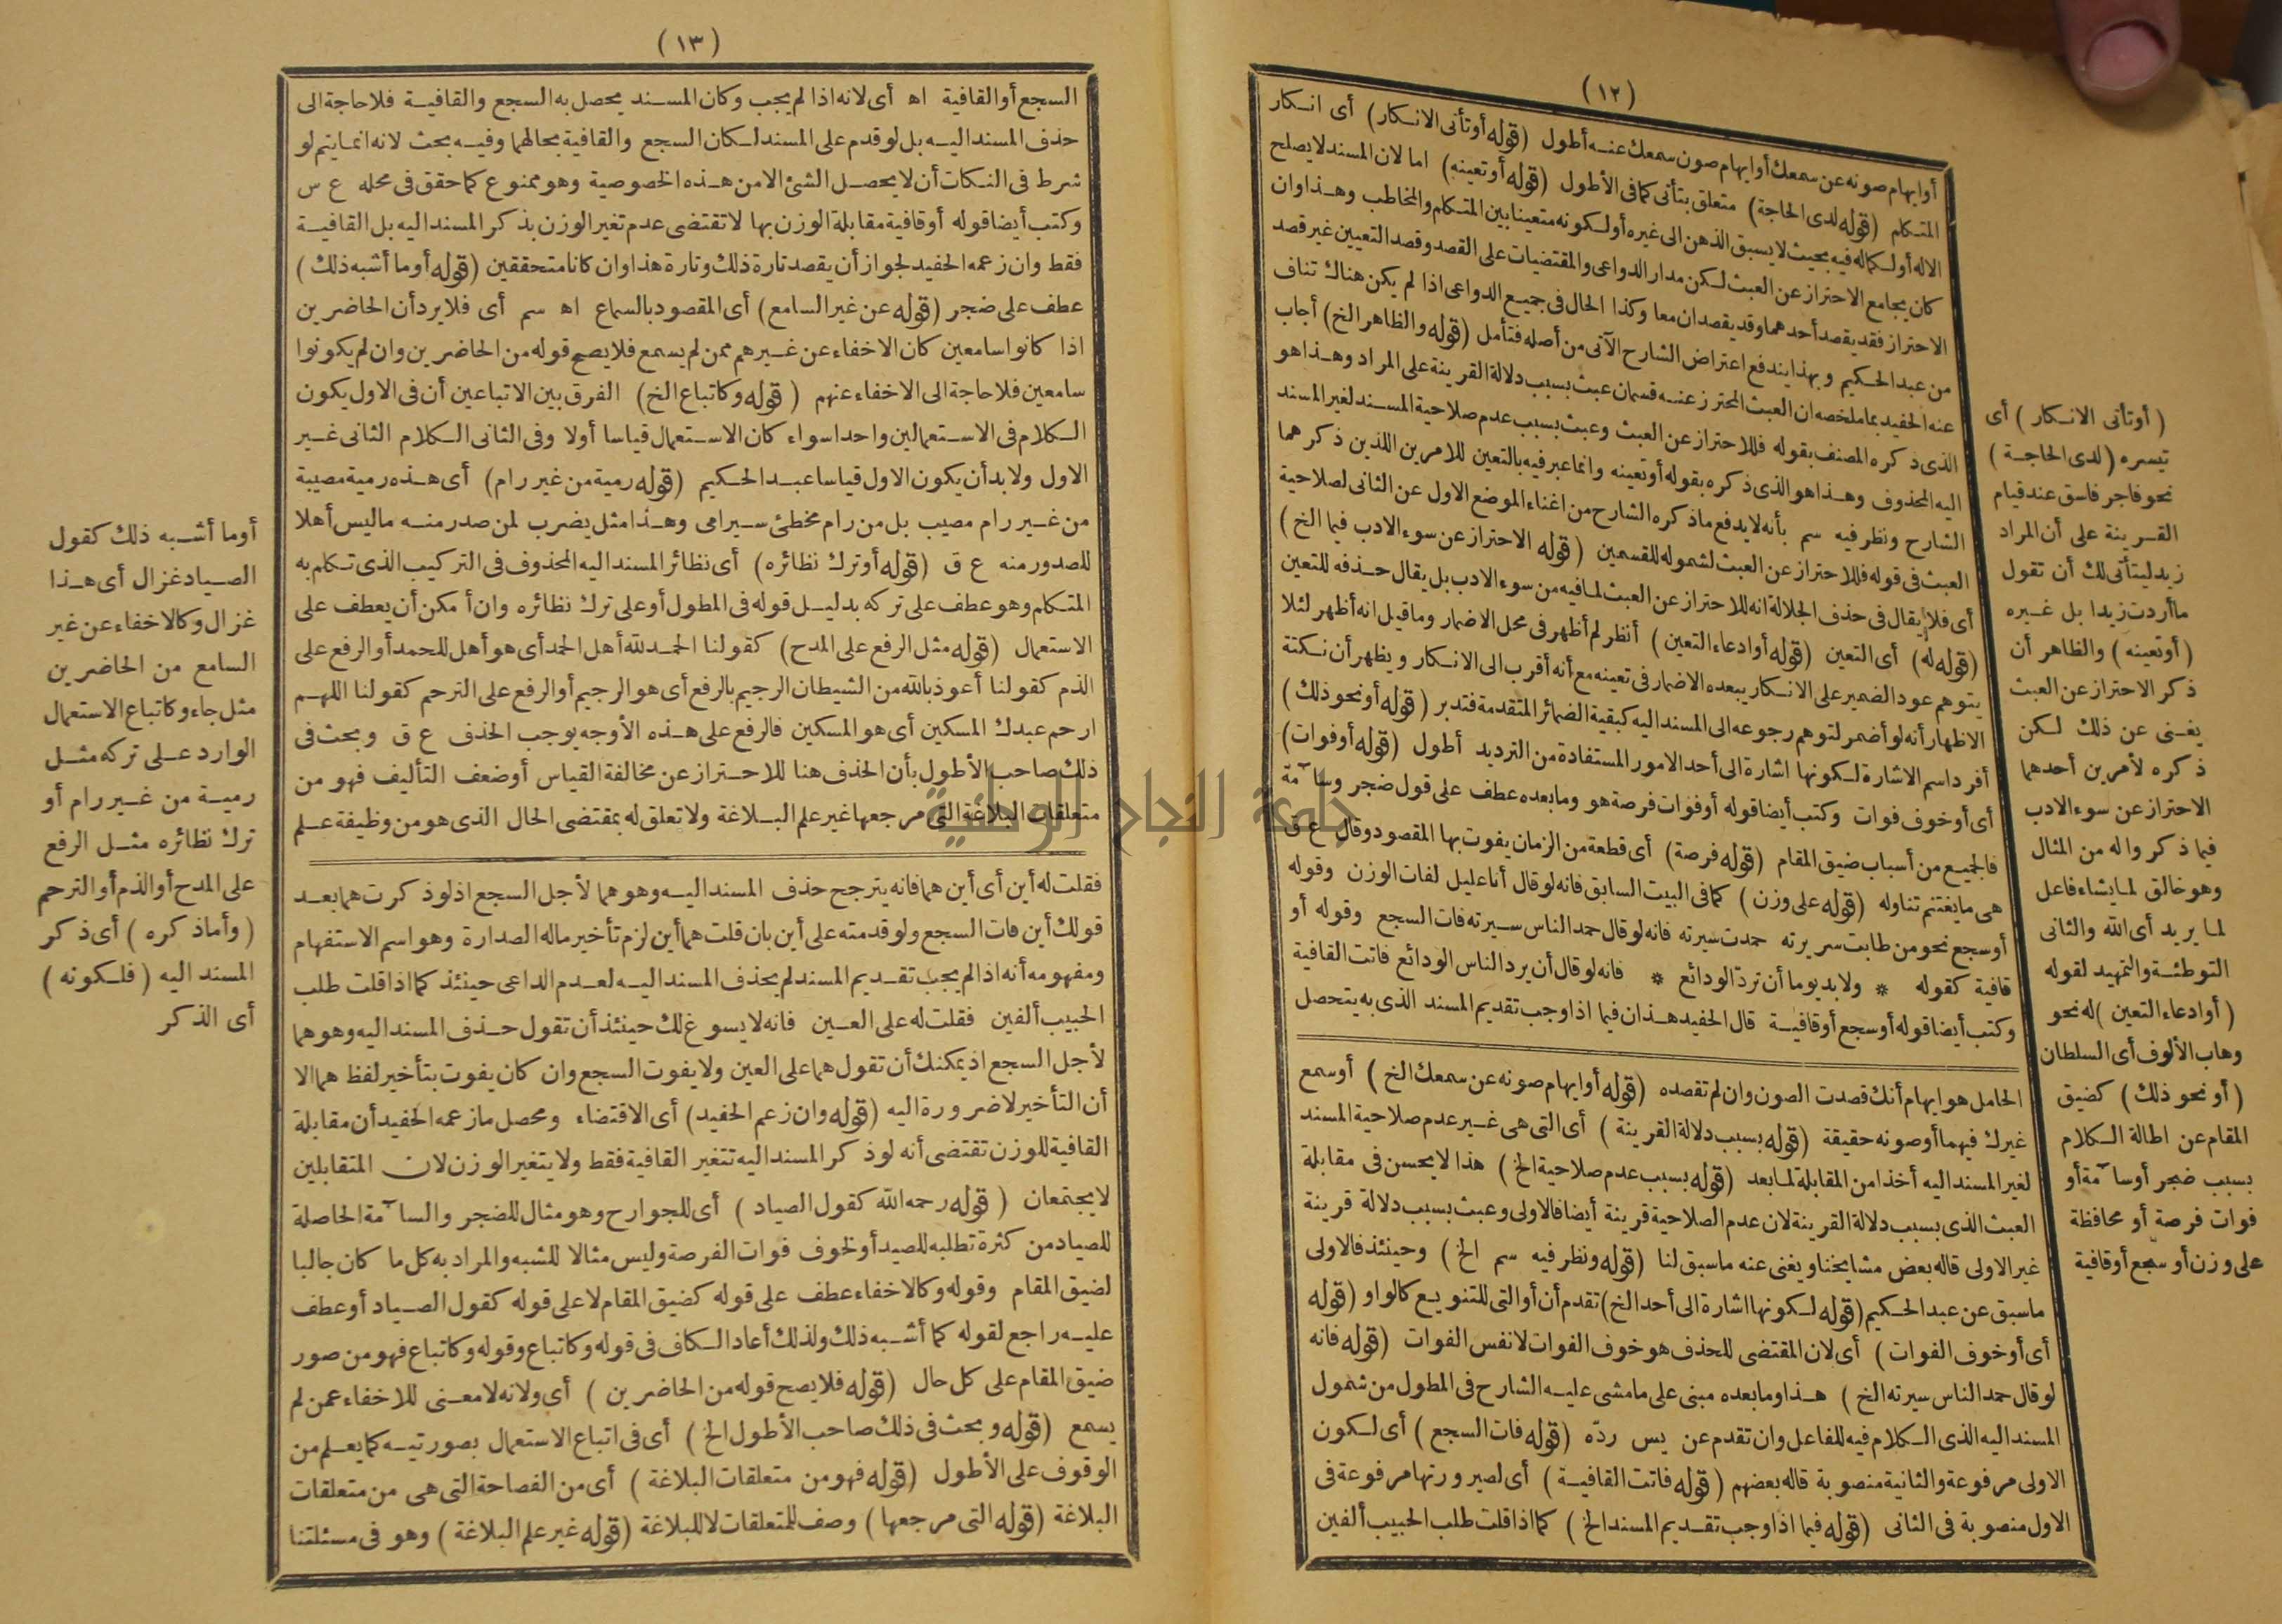 (١٢)
أو ايهام صونه عن سمعك أو ايهام صون سمعك عنه أطول (قوله أو تأتى الانكار) أى انكار
المتكلم (قوله لدى الحاجة) متعلق بتأتى كما فى الأطول (قوله أو تعينه) اما لان المسند لا يصلح
الا له أو لكماله فيه بحيث لا يسبق الذهن الى غيره أو لكونه متعينا بين المتكلم والمخاطب وهذا وان
كان يجامع الاحتراز عن العبث لكن مدار الدواعى والمقتضيات على القصد وقصد التعيين غير قصد
الاحتراز فقد يقصد أحدهما وقد يقصدان معا وكذا الحال فى جميع الدواعى اذا لم يكن هناك تناف
من عبد الحكيم وبهذا يندفع اعتراض الشارح الآتى من أصله فتأمل (قوله والظاهر الخ) أجاب
عنه الحفيد بما ملخصه ان العبث المحترز عنه قسمان عبث بسبب دلالة القرينة على المراد وهذا هو
الذى ذكره المصنف بقوله فللاحتراز عن العبث وعبث بسبب عدم صلاحية المسند لغير المسند
اليه المحذوف وهذا هو الذى ذكره بقوله أو تعينه وانما عبر فيه بالتعين للامرين اللذين ذكرهما
الشارح ونظر فيه سم بأنه لا يدفع ما ذكره الشارح من اغناء الموضع الاول عن الثانى لصلاحية
العبث فى قوله فللاحتراز عن العبث لشموله للقسمين (قوله الاحتراز عن سوء الادب فيما الخ)
أى فلا يقال فى حذف الجلالة انه للاحتراز عن العبث لما فيه من سوء الادب بل يقال حذفه للتعين
(قوله له) أى التعين (قوله أو ادعاء التعين) أنظر لم أظهر فى محل الاضمار وما قيل انه أظهر لئلا
يتوهم عود الضمير على الانكار يبعده الاضمار فى تعينه مع أنه أقرب الى الانكار ويظهر أن نكتة
الاظهار أنه لو أضمر لتوهم رجوعه الى المسند اليه كبقية الضمائر المتقدمة فتدبر (قوله أو نحو ذلك)
أفرد اسم الاشارة لكونها اشارة الى أحد الامور المستفادة من الترديد أطول (قوله أو فوات)
أى أو خوف فوات وكتب أيضا قوله أو فوات فرصة هو وما بعده عطف على قول ضجر وسآمة
فالجميع من أسباب ضيق المقام (قوله فرصة) أى قطعة من الزمان يفوت بها المقصود وقال ع ق
هى ما يغتنم تناوله (قوله على وزن) كما فى البيت السابق فانه لو قال أنا عليل لفات الوزن وقوله
أو سجع نحو من طابت سريرته حمدت سيرته فانه لو قال حمد الناس سيرته فات السجع وقوله أو
قافية كقوله * ولا بد يوما أن تردّ الودائع * فانه لو قال أن يرد الناس الودائع فاتت القافية
وكتب أيضا قوله أو سجع أو قافية قال الحفيد هذان فيما اذا وجب تقديم المسند الذى به يتحصل
الحامل هو ايهام أنك قصدت الصون وان لم تقصده (قوله أو ايهام صونه عن سمعك الخ) أو سمع
غيرك فيهما أو صونه حقيقة (قوله بسبب دلالة القرينة) أى التى هى غير عدم صلاحية المسند
لغير المسند اليه أخذا من المقابلة لما بعد (قوله بسبب عدم صلاحية الخ) هذا لا يحسن فى مقابلة
العبث الذى بسبب دلالة القرينة لان عدم الصلاحية قرينة أيضا فالاولى وعبث بسبب دلالة قرينة
غير الاولى قاله بعض مشايخنا ويغنى عنه ما سبق لنا (قوله ونظر فيه سم الخ) وحينئذ فالاولى
ما سبق عن عبد الحكيم (قوله لكونها اشارة الى أحد الخ) تقدم أن أو التى للتنويع كالواو (قوله
أى أو خوف الفوات) أى لان المقتضى للحذف هو خوف الفوات لا نفس الفوات (قوله فانه
لو قال حمد الناس سيرته الخ) هذا وما بعده مبنى على ما مشى عليه الشارح فى المطول من شمول
المسند اليه الذى الكلام فيه للفاعل وان تقدم عن يس ردّه (قوله فات السجع) أى لكون
الاولى مرفوعة والثانية منصوبة قاله بعضهم (قوله فاتت القافية) أى لصيرورتها مرفوعة فى
الاول منصوبة فى الثانى (قوله فيما اذا وجب تقديم المسند الخ) كما اذا قلت طلب الحبيب ألفين
(أو تأتى الانكار) أى
تيسره (لدى الحاجة)
نحو فاجر فاسق عند قيام
القرينة على أن المراد
زيد ليتأتى لك أن تقول
ما أردت زيدا بل غيره
(أو تعينه) والظاهر أن
ذكر الاحتراز عن العبث
يغنى عن ذلك لكن
ذكره لأمرين أحدهما
الاحتراز عن سوء الادب
فيما ذكروا له من المثال
وهو خالق لما يشاء فاعل
لما يريد أى الله والثانى
التوطئة والتمهيد لقوله
(أو ادعاء التعين) له نحو
وهاب الألوف أى السلطان
(أو نحو ذلك) كضيق
المقام عن اطالة الكلام
بسبب ضجر أو سآمة أو
فوات فرصة أو محافظة
على وزن أو سجع أو قافية
(١٣)
السجع أو القافية اه أى لانه اذا لم يجب وكان المسند يحصل به السجع والقافية فلا حاجة الى
حذف المسند اليه بل لو قدم على المسند لكان السجع والقافية بحالهما وفيه بحث لانه انما يتم لو
شرط فى النكات أن لا يحصل الشئ الا من هذه الخصوصية وهو ممنوع كما حقق فى محله ع س
وكتب أيضا قوله أو قافية مقابلة الوزن بها لا تقتضى عدم تغير الوزن بذكر المسند اليه بل القافية
فقط وان زعمه الحفيد لجواز أن يقصد تارة ذلك وتارة هذا وان كانا متحققين (قوله أو ما أشبه ذلك)
عطف على ضجر (قوله عن غير السامع) أى المقصود بالسماع اه سم أى فلا يرد أن الحاضرين
اذا كانوا سامعين كان الاخفاء عن غيرهم ممن لم يسمع فلا يصح قوله من الحاضرين وان لم يكونوا
سامعين فلا حاجة الى الاخفاء عنهم (قوله وكاتباع الخ) الفرق بين الاتباعين أن فى الاول يكون
الكلام فى الاستعمالين واحدا سواء كان الاستعمال قياسا أولا وفى الثانى الكلام الثانى غير
الاول ولا بد أن يكون الاول قياسا عبد الحكيم (قوله رمية من غير رام) أى هذه رمية مصيبة
من غير رام مصيب بل من رام مخطئ سيرامى وهذا مثل يضرب لمن صدر منه ما ليس أهلا
للصدور منه ع ق (قوله أو ترك نظائره) أى نظائر المسند اليه المحذوف فى التركيب الذى تكلم به
المتكلم وهو عطف على تركه بدليل قوله فى المطول أو على ترك نظائره وان أمكن أن يعطف على
الاستعمال (قوله مثل الرفع على المدح) كقولنا الحمد لله أهل الحمد أى هو أهل للحمد أو الرفع على
الذم كقولنا أعوذ بالله من الشيطان الرجيم بالرفع أى هو الرجيم أو الرفع على الترحم كقولنا اللهم
ارحم عبدك المسكين أى هو المسكين فالرفع على هذه الأوجه يوجب الحذف ع ق وبحث فى
ذلك صاحب الأطول بأن الحذف هنا للاحتراز عن مخالفة القياس أو ضعف التأليف فهو من
متعلقات البلاغة التى مرجعها غير علم البلاغة ولا تعلق له بمقتضى الحال الذى هو من وظيفة علم
فقلت له أين أى أين هما فانه يترجح حذف المسند اليه وهو هما لأجل السجع اذ لو ذكرت هما بعد
قولك أين فات السجع ولو قدمته على أين بان قلت هما أين لزم تأخير ماله الصدارة وهو اسم الاستفهام
ومفهومه أنه اذا لم يجب تقديم المسند لم يحذف المسند اليه لعدم الداعى حينئذ كما اذا قلت طلب
الحبيب ألفين فقلت له على العين فانه لا يسوغ لك حينئذ أن تقول حذف المسند اليه وهو هما
لأجل السجع اذ يمكنك أن تقول هما على العين ولا يفوت السجع وان كان يفوت بتأخير لفظ هما الا
أن التأخير لا ضرورة اليه (قوله وان زعم الحفيد) أى الاقتضاء ومحصل ما زعمه الحفيد أن مقابلة
القافية للوزن تقتضى أنه لو ذكر المسند اليه تتغير القافية فقط ولا يتغير الوزن لان المتقابلين
لا يجتمعان (قوله رحمه الله كقول الصياد) أى للجوارح وهو مثال للضجر والسآمة الحاصلة
للصياد من كثرة تطلبه للصيد أو لخوف فوات الفرصة وليس مثالا للشبه والمراد به كل ما كان جالبا
لضيق المقام وقوله وكالاخفاء عطف على قوله كضيق المقام لا على قوله كقول الصياد أو عطف
عليه راجع لقوله كما أشبه ذلك ولذلك أعاد الكاف فى قوله وكاتباع وقوله وكاتباع فهو من صور
ضيق المقام على كل حال (قوله فلا يصح قوله من الحاضرين) أى ولانه لا معنى للاخفاء عمن لم
يسمع (قوله وبحث فى ذلك صاحب الأطول الخ) أى فى اتباع الاستعمال بصورتيه كما يعلم من
الوقوف على الأطول (قوله فهو من متعلقات البلاغة) أى من الفصاحة التى هى من متعلقات
البلاغة (قوله التى مرجعها) وصف للمتعلقات لا للبلاغة (قوله غير علم البلاغة) وهو فى مسئلتنا
أو ما أشبه ذلك كقول
الصياد غزال أى هذا
غزال وكالاخفاء عن غير
السامع من الحاضرين
مثل جاء وكاتباع الاستعمال
الوارد على تركه مثل
رمية من غير رام أو
ترك نظائره مثل الرفع
على المدح أو الذم أو الترحم
(وأما ذكره) أى ذكر
المسند اليه (فلكونه)
أى الذكر
جامعة النجاح الوطنية